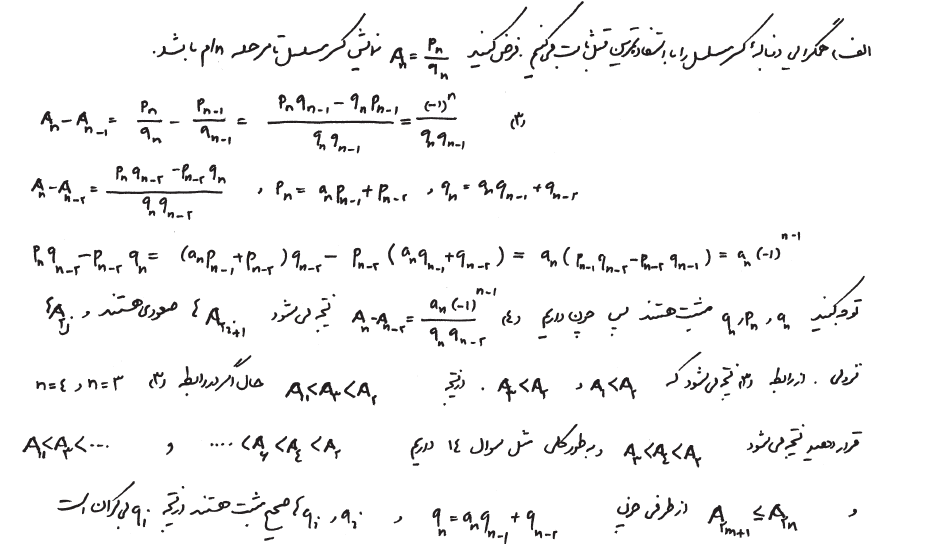 الف) همگرایی دنبالهٔ کسر مسلسل را با استفاده از تمرین قبل ثابت می‌کنیم. فرض کنید Aₙ = pₙ/qₙ نمایش کسر مسلسل تا مرحله nام باشد.
(۳) Aₙ − Aₙ₋₁ = pₙ/qₙ − pₙ₋₁/qₙ₋₁ = (pₙqₙ₋₁ − qₙpₙ₋₁)/(qₙqₙ₋₁) = (−1)ⁿ/(qₙqₙ₋₁)
Aₙ − Aₙ₋₂ = (pₙqₙ₋₂ − pₙ₋₂qₙ)/(qₙqₙ₋₂) , pₙ = aₙpₙ₋₁ + pₙ₋₂ , qₙ = aₙqₙ₋₁ + qₙ₋₂
pₙqₙ₋₂ − pₙ₋₂qₙ = (aₙpₙ₋₁ + pₙ₋₂)qₙ₋₂ − pₙ₋₂(aₙqₙ₋₁ + qₙ₋₂) = aₙ(pₙ₋₁qₙ₋₂ − pₙ₋₂qₙ₋₁) = aₙ(−1)ⁿ⁻¹
توجه کنید aₙ و pₙ و qₙ مثبت هستند پس چون داریم (۴) Aₙ − Aₙ₋₂ = aₙ(−1)ⁿ⁻¹/(qₙqₙ₋₂) نتیجه می‌شود {A₂ᵢ₊₁} صعودی هستند و {A₂ⱼ}
نزولی. از رابطه (۳) نتیجه می‌شود که A₁<A₂ و A₃<A₂. در نتیجه A₁<A₃<A₂ حال اگر در رابطه (۳) n=۳ و n=٤
قرار دهید نتیجه می‌شود A₃<A₄<A₂ و به طور کلی مثل سوال ١٤ داریم ....<A₆<A₄<A₂ و A₁<A₃<...
و A₂ₘ₊₁ ≤ A₂ₙ از طرفی چون qₙ = aₙqₙ₋₁ + qₙ₋₂ و aᵢ و qᵢ ها صحیح مثبت هستند در نتیجه qᵢ بی‌کران است